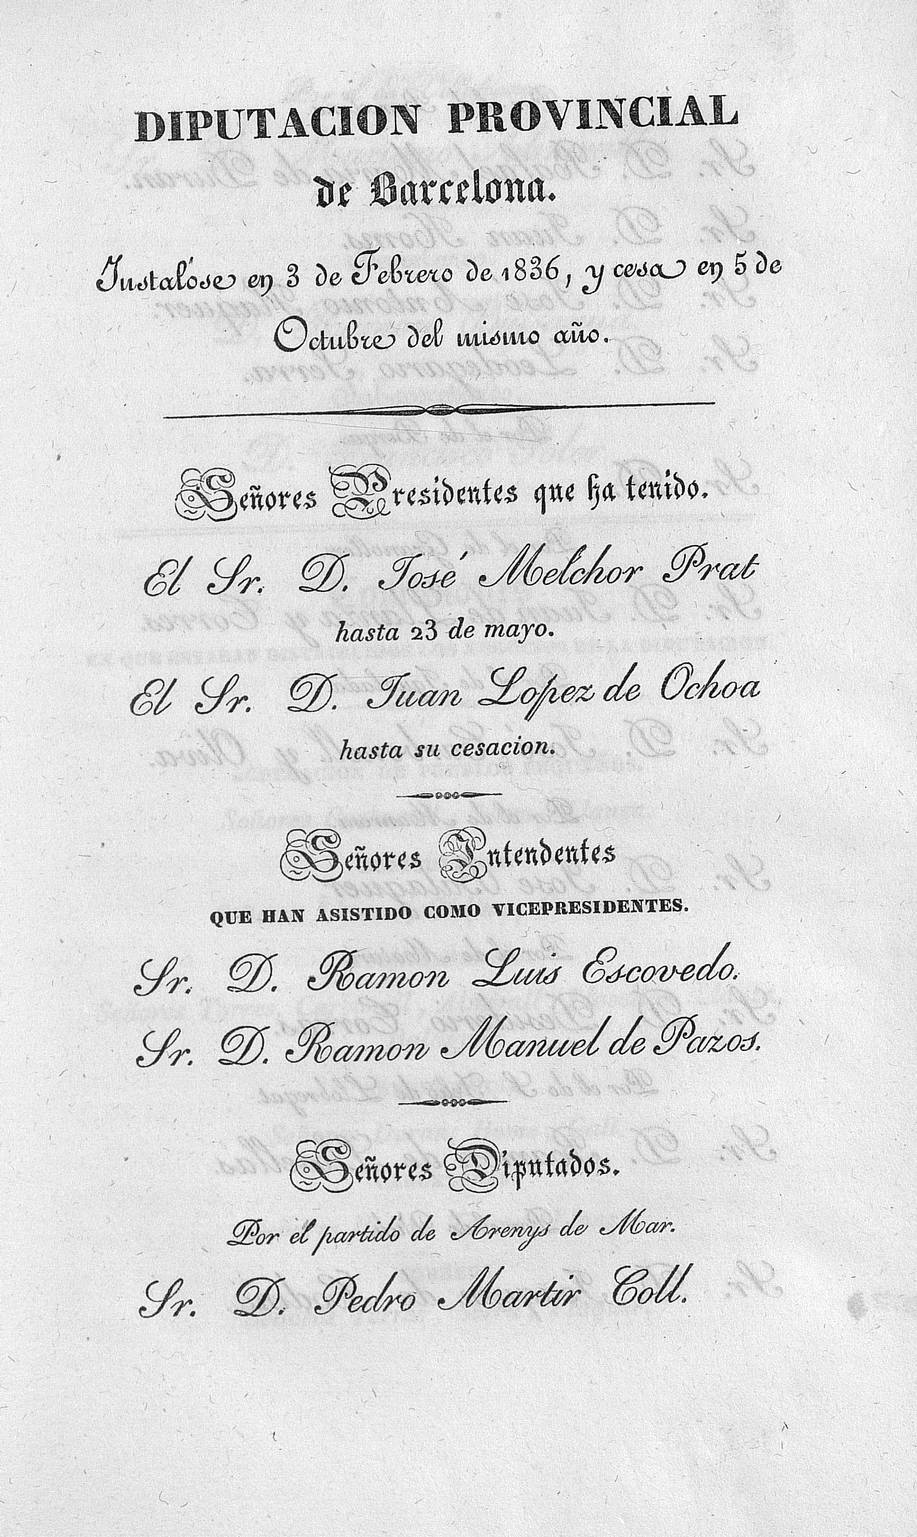 DIPUTACION PROVINCIAL
de Barcelona.
Instalóse en 3 de Febrero de 1836, y cesa en 5 de
Octubre del mismo año.
Señores Presidentes que ha tenido.
El Sr. D. José Melchor Prat
hasta 23 de mayo.
El Sr. D. Juan Lopez de Ochoa
hasta su cesacion.
Señores Intendentes
QUE HAN ASISTIDO COMO VICEPRESIDENTES.
Sr. D. Ramon Luis Escovedo.
Sr. D. Ramon Manuel de Pazos.
Señores Diputados.
Por el partido de Arenys de Mar.
Sr. D. Pedro Martir Coll.